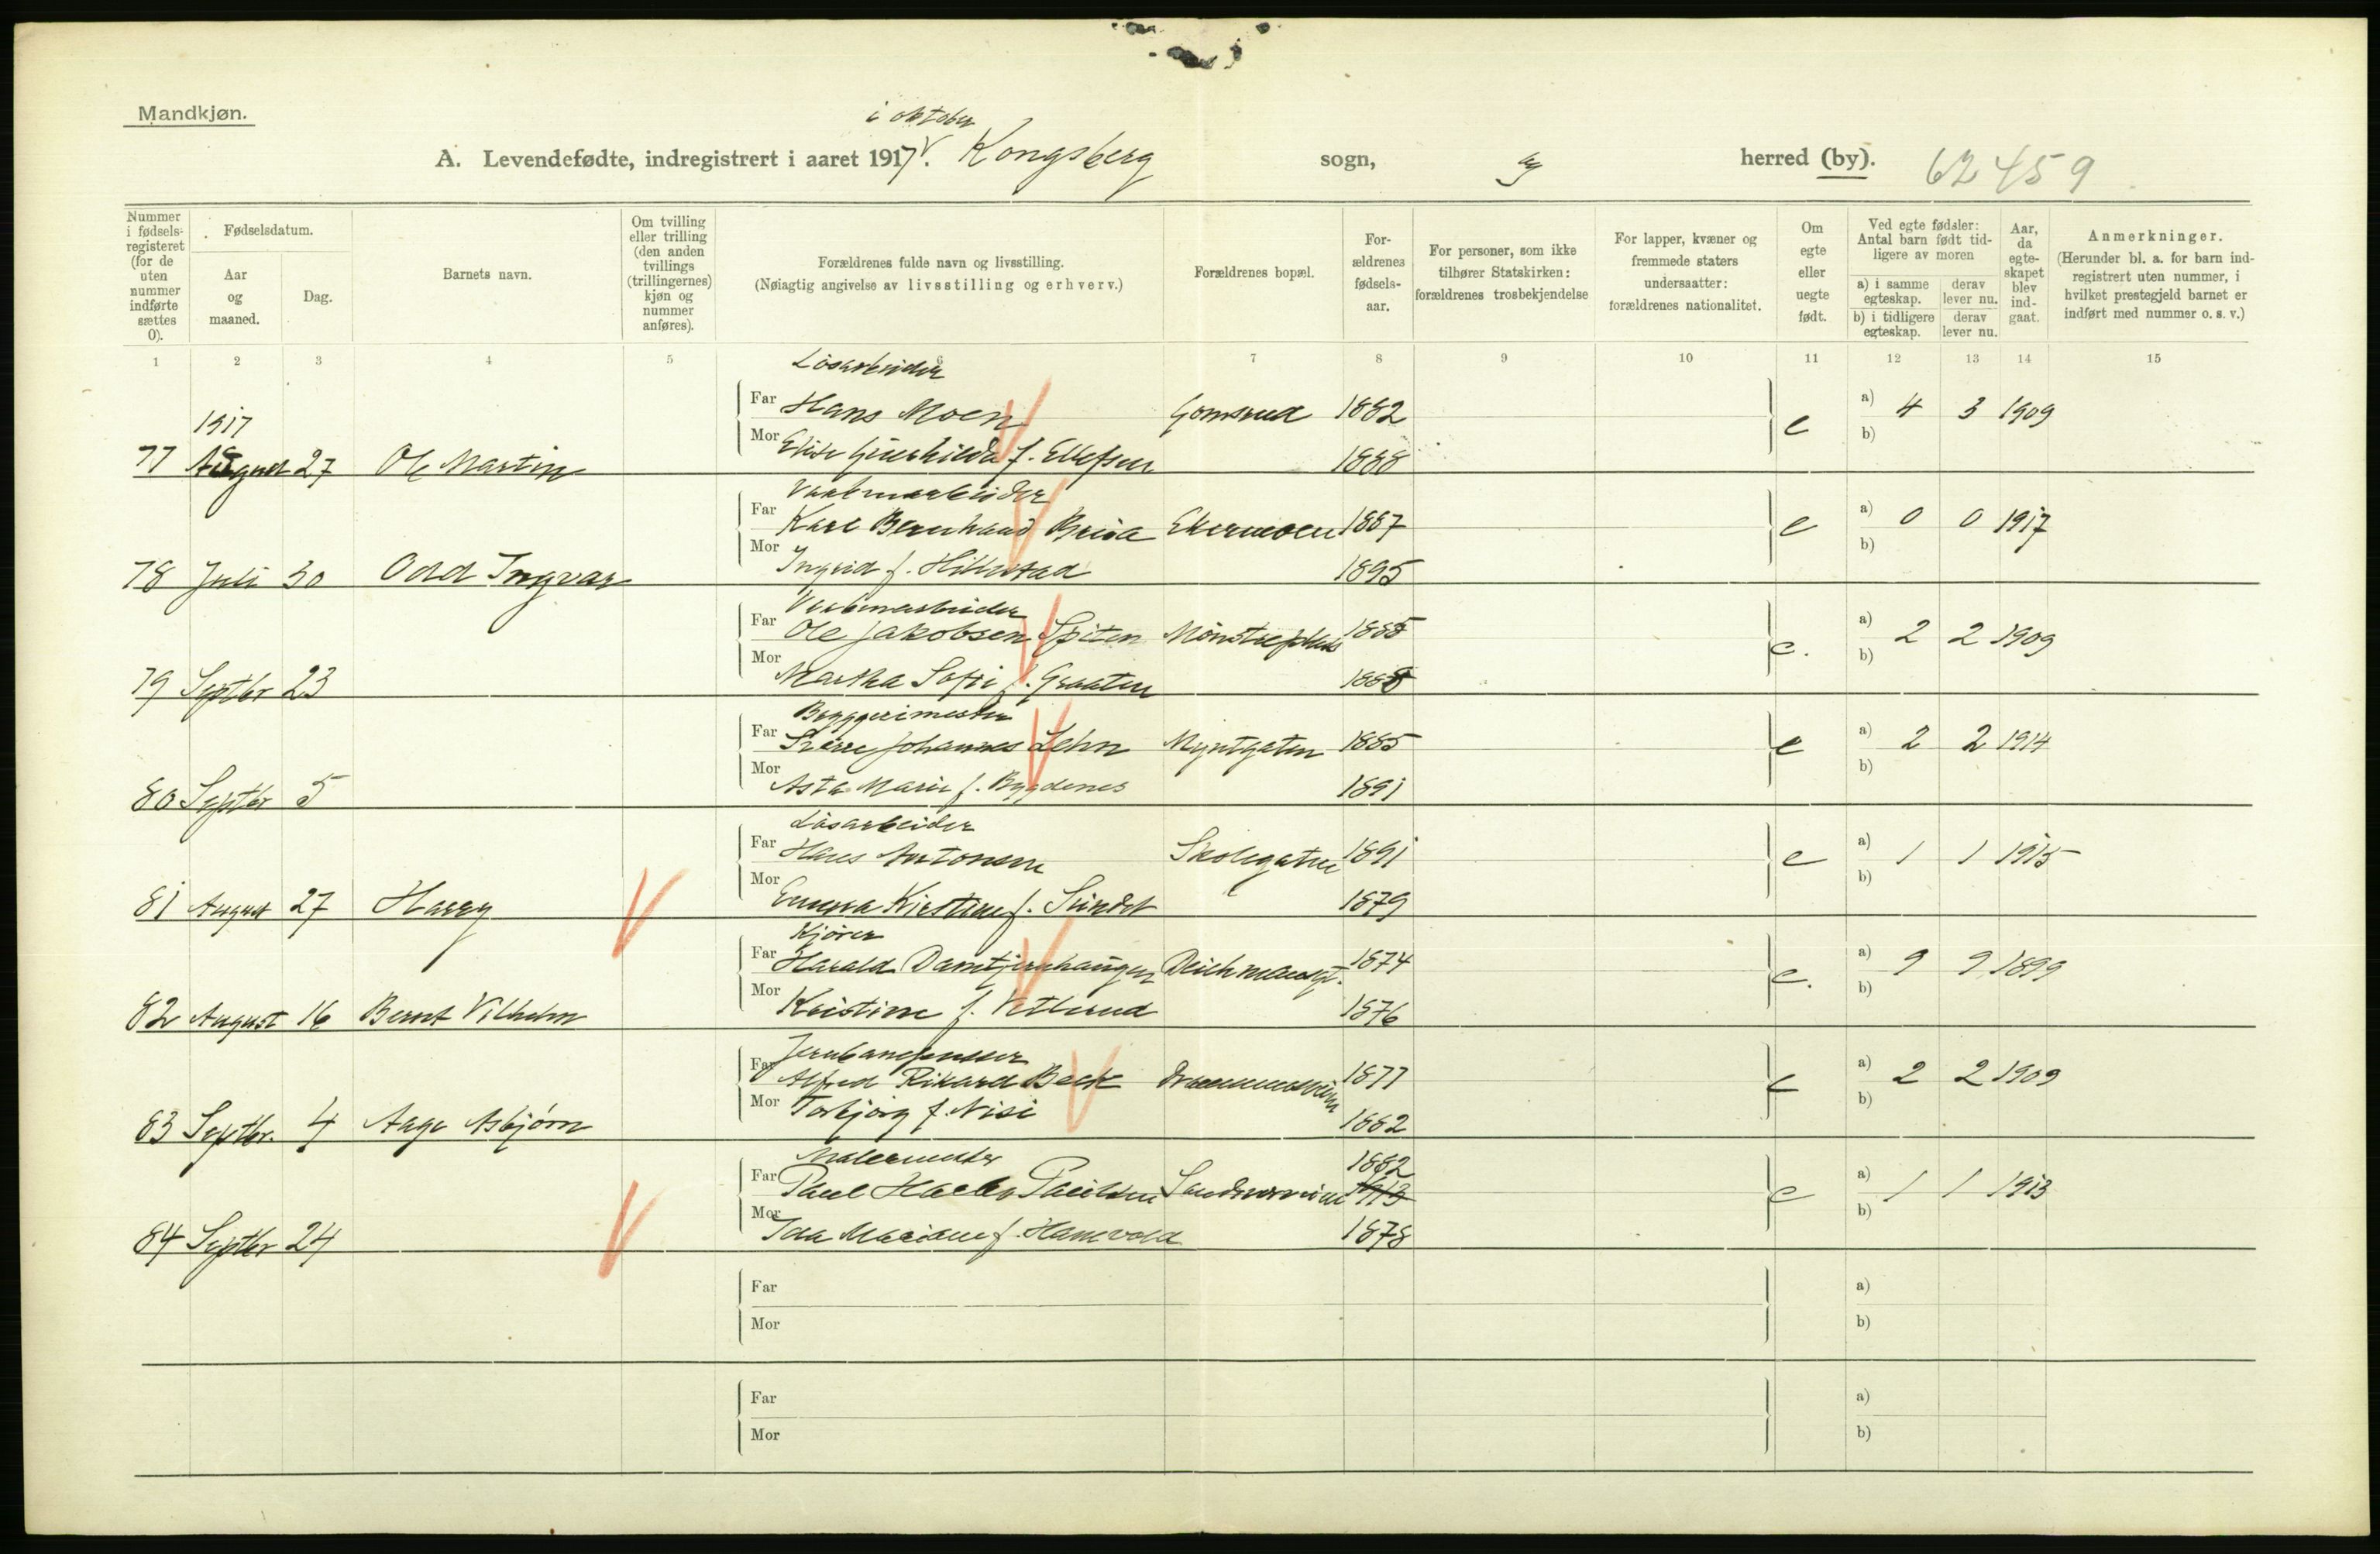 Mandkjøn.
i oktober
A. Levendefødte, indregistrert i aaret 1917. Kongsberg sogn, herred (by). 62459
Nummer i fødselsregisteret (for de uten nummer indførte sættes 0).
Fødselsdatum.
Aar og maaned.
Dag.
Barnets navn.
Om tvilling eller trilling (den anden tvillings (trillingernes) kjøn og nummer anføres).
Forældrenes fulde navn og livsstilling.
(Nøiagtig angivelse av livsstilling og erhverv.)
Forældrenes bopæl.
Forældrenes fødselsaar.
For personer, som ikke tilhører Statskirken: forældrenes trosbekjendelse
For lapper, kvæner og fremmede staters undersaatter: forældrenes nationalitet.
Om egte eller uegte født.
Ved egte fødsler: Antal barn født tidligere av moren
a) i samme egteskap. derav lever nu.
b) i tidligere egteskap. derav lever nu.
Aar, da egteskapet blev indgaat.
Anmerkninger.
(Herunder bl. a. for barn indregistrert uten nummer, i hvilket prestegjeld barnet er indført med nummer o. s. v.)
1 2 3 4 5 6 7 8 9 10 11 12 13 14 15
Løsarbeider
1917 Far Hans Moen Gomsrud 1882 e a) 4 3 1909
77 August 27 Ole Martin Mor Elise Gunhilda f. Ellefsen 1888 b)
Far Karl Bernhard 1887 e a) 0 0 1917
78 Juli 30 Odd Ingvar Mor Ingrid f. 1895 b)
Far Ole Jakobsen Spiten 1885 e. a) 2 2 1909
79 Septbr 23 Mor Martha Sofie f. Graaten 1888 b)
Bryggerimester
Far Sverre Johannes Lehn Myntgaten 1885 e a) 2 2 1914
80 Septbr 5 Mor Asta Marie f. Bygdenes 1891 b)
Løsarbeider
Far Hans Antonsen Skolegaten 1891 e a) 1 1 1915
81 August 27 Harry Mor Emma Kirstine f. Sundet 1879 b)
Kjører
Far Harald Damtjernhaugen Deichmansgt. 1874 e. a) 9 9 1899
82 August 16 Bernt Vilhelm Mor Kristine f. Vetlerud 1876 b)
Far Alfred Rikard Beck 1877 e a) 2 2 1909
83 Septbr. 4 Aage Asbjørn Mor Torbjørg f. Nisi 1882 b)
Malermester 1882
Far Paul Paulsen 1913 e a) 1 1 1913
84 Septbr 24 Mor Ida f. Hamevold 1878 b)
Far a)
Mor b)
Far a)
Mor b)